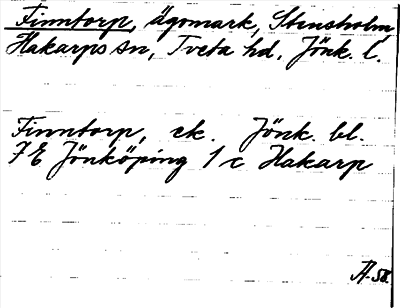 Finntorp, ägomark, Stensholm
Hakarps sn, Tveta hd, Jönk. l.
Finntorp, ek. Jönk. bl.
7E Jönköping 1 c Hakarp
Å.-58.